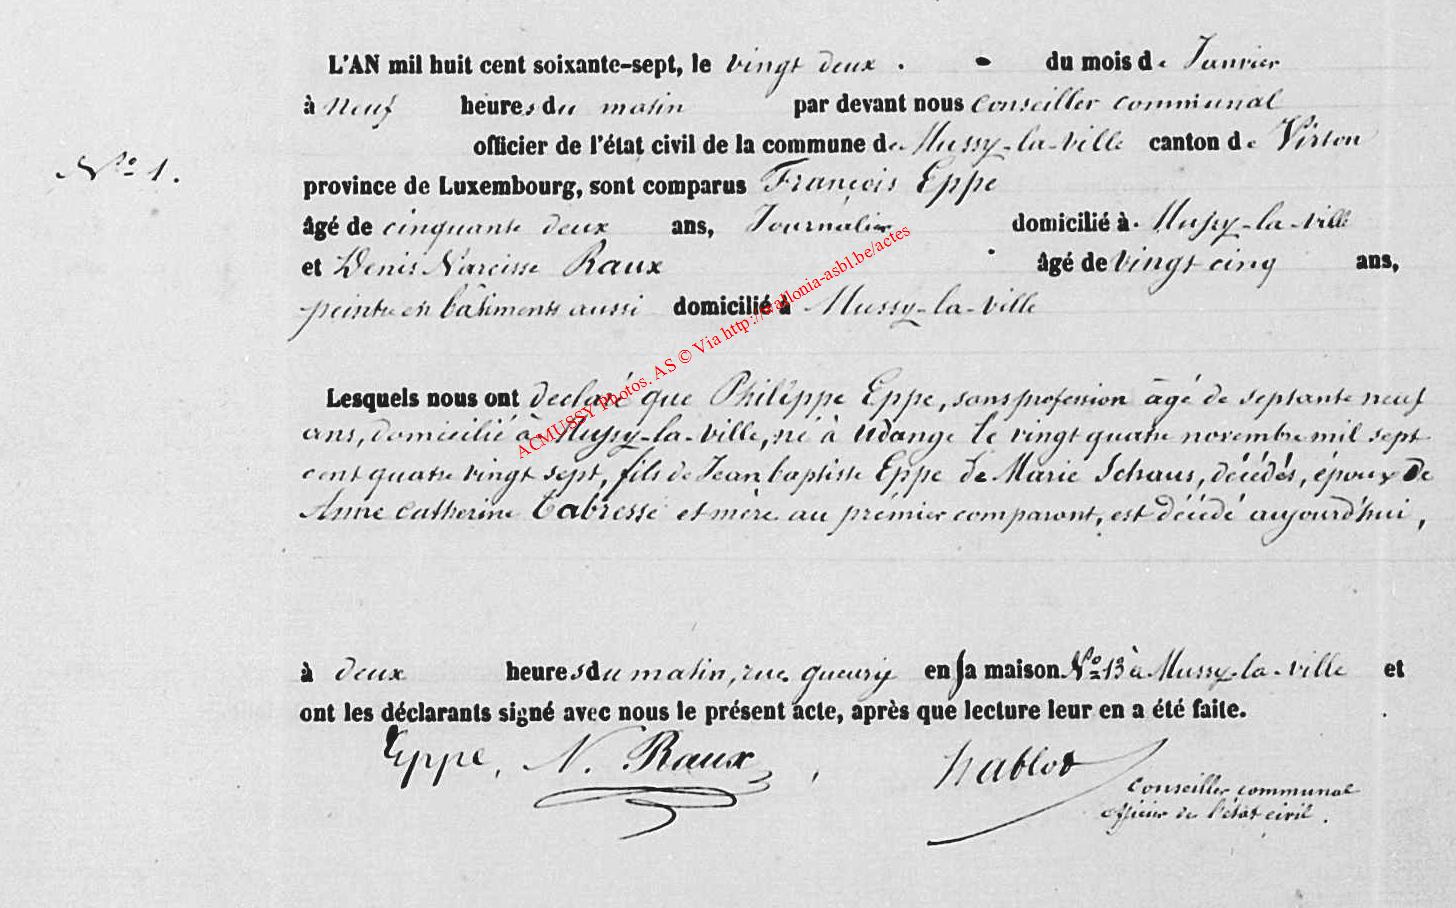 L'AN mil huit cent soixante-sept, le vingt deux . du mois de Janvier
à neuf heures du matin par devant nous conseiller communal
officier de l'état civil de la commune de Mussy-la-ville canton de Virton
N° 1.
province de Luxembourg, sont comparus François Eppe
âgé de cinquante deux ans, Journalier domicilié à Mussy-la-ville
et Denis Narcisse Raux âgé de vingt cinq ans,
peintre en bâtiments aussi domicilié à Mussy-la-ville
Lesquels nous ont declaré que Philippe Eppe, sans profession âgé de septante neuf
ans, domicilié à Mussy-la-ville, né à Udange le vingt quatre novembre mil sept
cent quatre vingt sept, fils de Jean baptiste Eppe de Marie Schaus, décédés, époux de
Anne Catherine Tabresse et mère au prémier comparant, est décédé aujourd'hui,
à deux heures du matin, rue en sa maison N° 13 à Mussy-la-ville et
ont les déclarants signé avec nous le présent acte, après que lecture leur en a été faite.
Eppe, N. Raux, hablot
conseiller communal
officier de l'état civil.
ACMUSSY Photos. AS © Via http://wallonia-asbl.be/actes